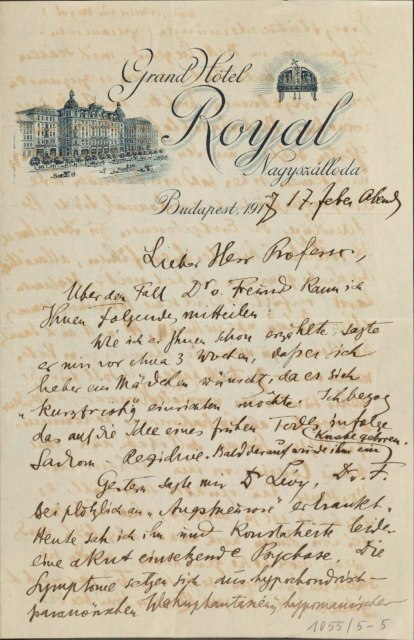 Grand Hôtel
Royal
Nagyszálloda
Budapest, 1917 17. feber Abends
Lieber Herr Professor,
Über den Fall Dr v. Freund kann ich
Ihnen Folgendes mitteilen:
Wie ich es Ihnen schon erzählte, sagte
er mir vor etwa 3 Wochen, dass er sich
lieber ein Mädchen wünscht, da er sich
"kurzfristig" einrichten möchte. Ich bezog
das auf die Idee eines frühen Todes infolge
Sarkom-Rezidive. Bald darauf wurde ihm ein
Knabe geboren.
Gestern sagte mir Dr Lévy, Dr. F.
sei plötzlich an „Angstneurose" erkrankt.
Heute sah ich ihn und konstatierte leider
eine akut einsetzende Psychose. Die
Symptome setzen sich aus hypochondrisch-
paranoischen Wahnphantasien, hypomanischer
1055/5-5